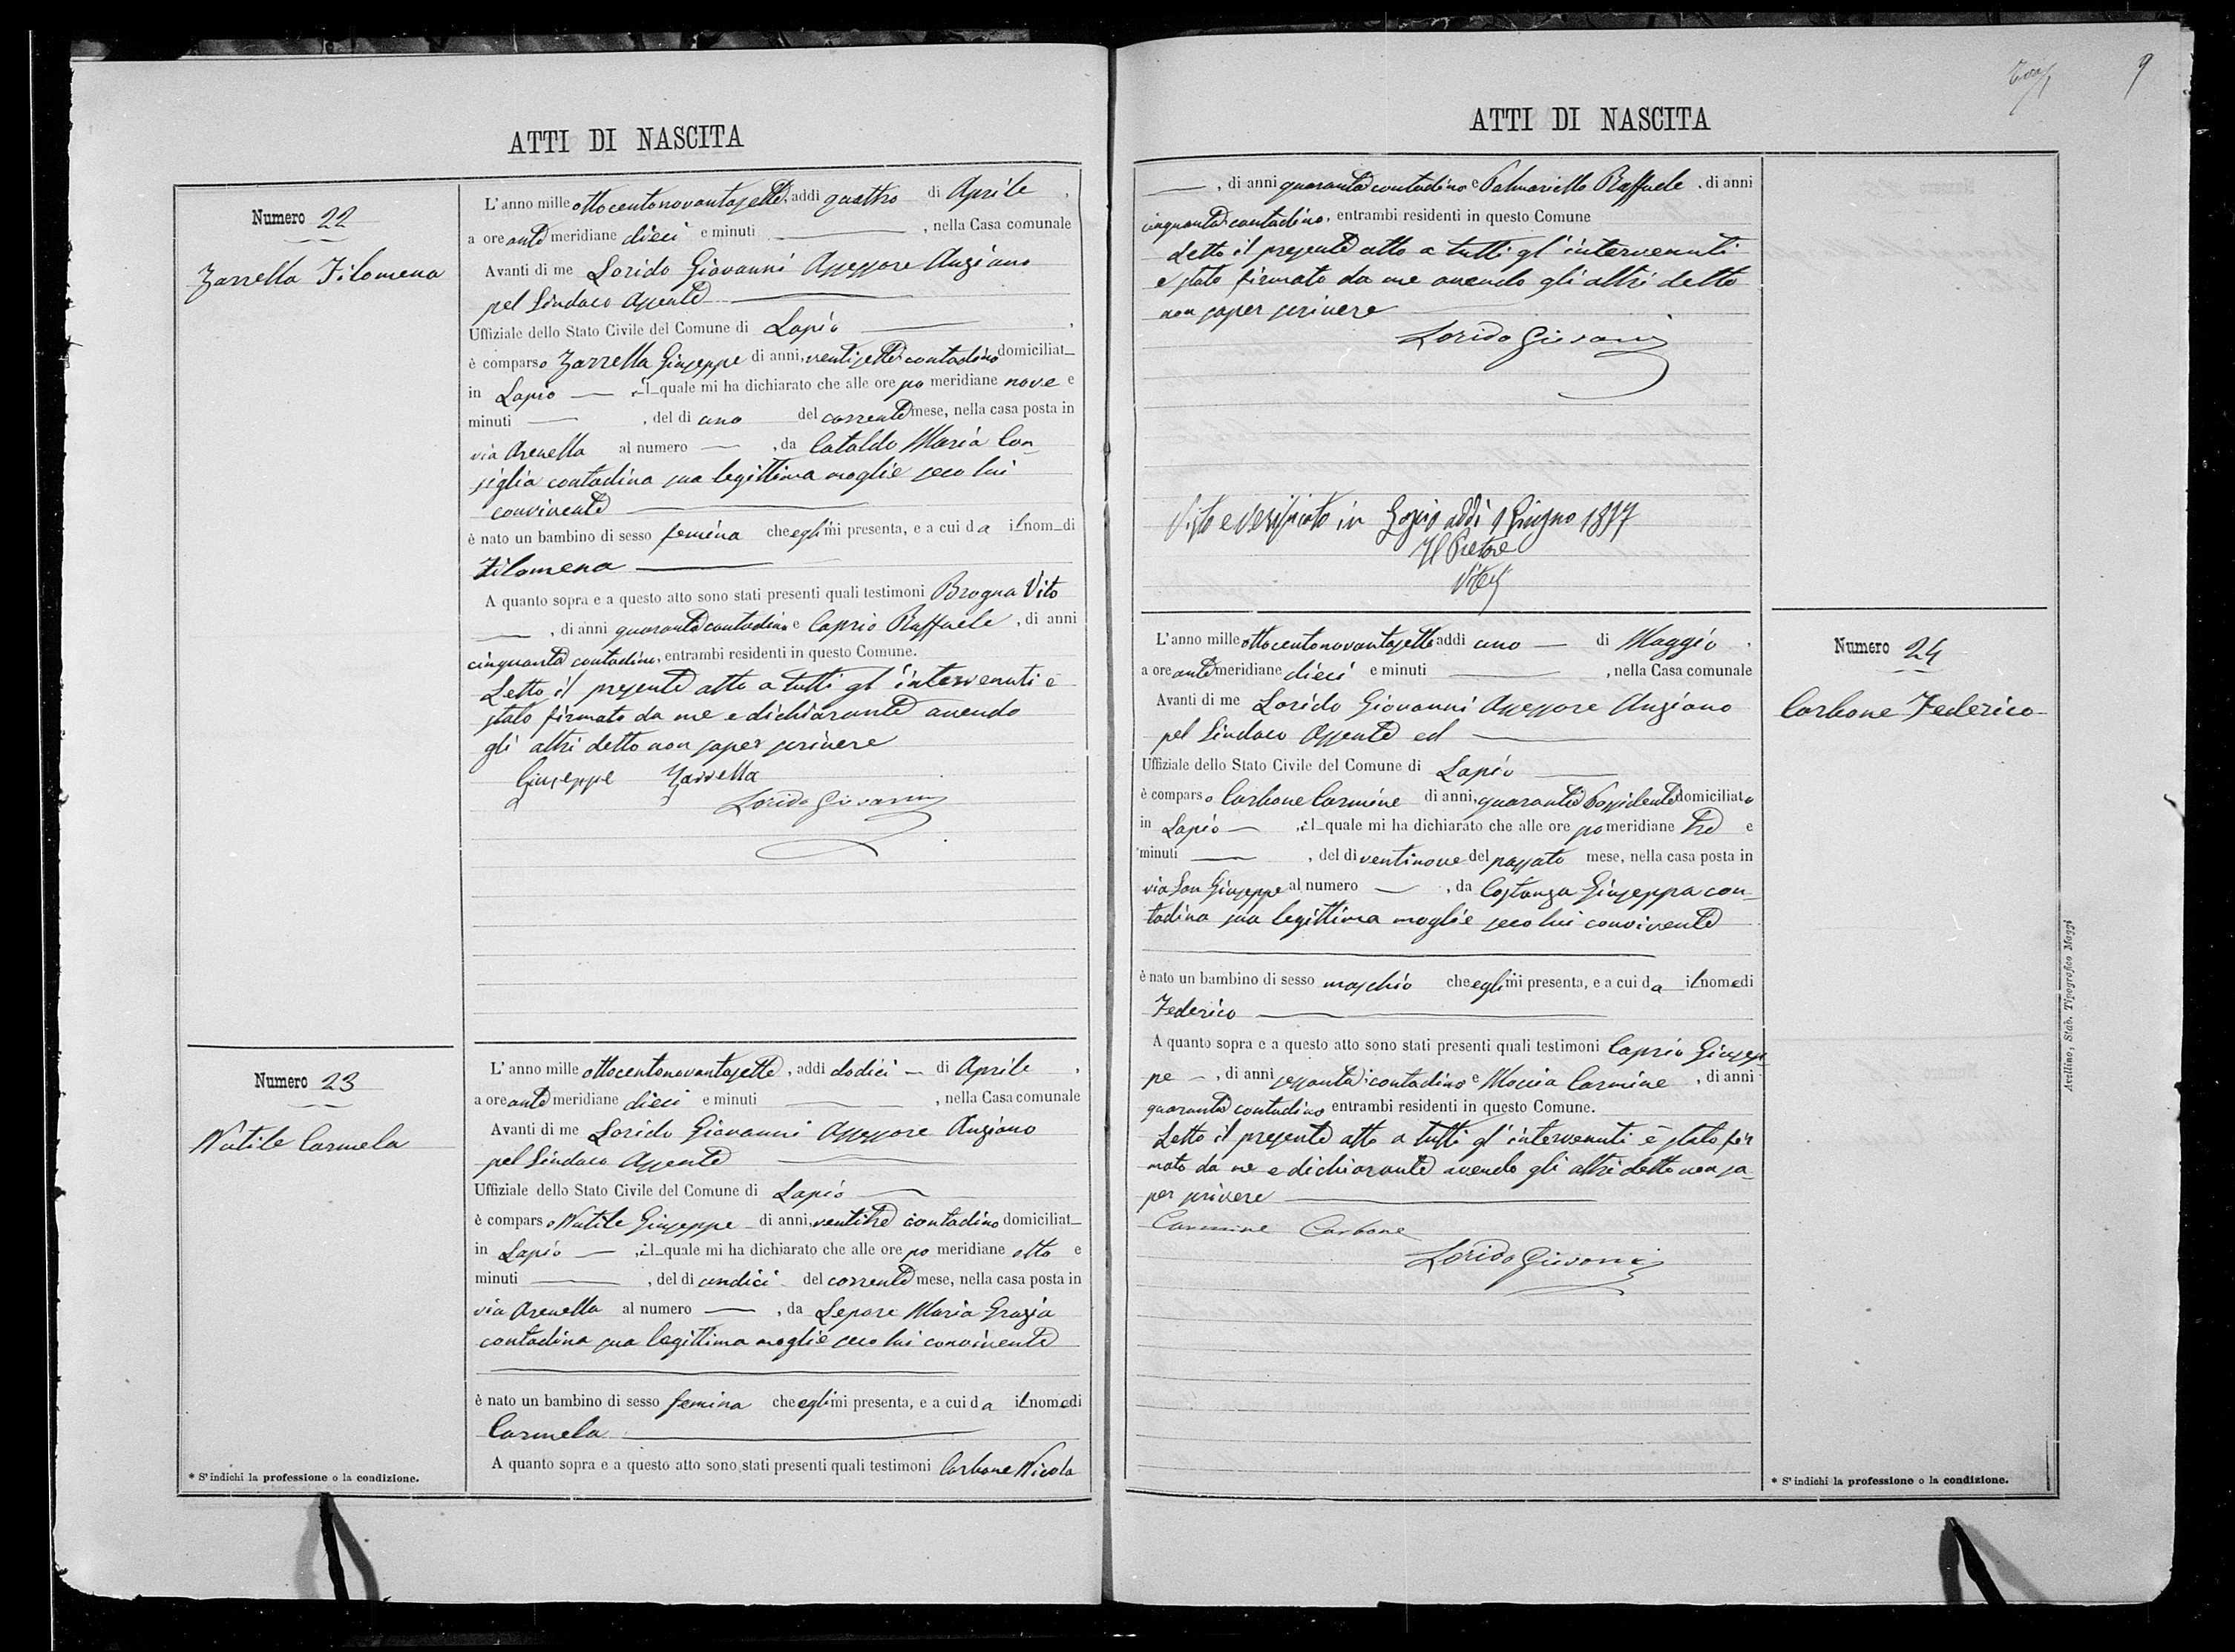 ATTI DI NASCITA
Numero 22
Zarrella Filomena
L'anno mille ottocentonovantasette, addi quattro di Aprile,
a ore ante meridiane dieci e minuti —, nella Casa comunale
Avanti di me Lorido Giovanni Assessore Anziano
pel Sindaco assente —
Uffiziale dello Stato Civile del Comune di Lapio —,
è comparso Zarrella Giuseppe di anni, ventisette contadino domiciliat_
in Lapio —, il_quale mi ha dichiarato che alle ore po meridiane nove e
minuti —, del di uno del corrente mese, nella casa posta in
via Arenella al numero —, da Cataldo Maria Con-
siglia contadina sua legittima moglie seco lui
convivente —
è nato un bambino di sesso femina che egli mi presenta, e a cui da il nom_di
Filomena —
A quanto sopra e a questo atto sono stati presenti quali testimoni Brogna Vito
—, di anni quaranta contadino e Caprio Raffaele, di anni
cinquanta contadino, entrambi residenti in questo Comune.
Letto il presente atto a tutti gl'intervenuti è
stato firmato da me e dichiarante avendo
gli altri detto non saper scrivere
Giuseppe Zarrella
Lorido Giovanni
Numero 23
Nutile Carmela
L'anno mille ottocentonovantasette, addi dodici — di Aprile,
a ore ante meridiane dieci e minuti —, nella Casa comunale
Avanti di me Lorido Giovanni Assessore Anziano
pel Sindaco assente —
Uffiziale dello Stato Civile del Comune di Lapio —
è comparso Nutile Giuseppe di anni, ventitre contadino domiciliat_
in Lapio —, il_quale mi ha dichiarato che alle ore po meridiane otto e
minuti —, del di undici del corrente mese, nella casa posta in
via Arenella al numero —, da Lepore Maria Grazia
contadina sua legittima moglie seco lui convivente
è nato un bambino di sesso femina che egli mi presenta, e a cui da il nome di
Carmela —
A quanto sopra e a questo atto sono stati presenti quali testimoni Carbone Nicola
* S'indichi la professione o la condizione.
9
ATTI DI NASCITA
—, di anni quaranta contadino e Palmariello Raffaele, di anni
cinquanta contadino, entrambi residenti in questo Comune
Letto il presente atto a tutti gl'intervenuti
e stato firmato da me avendo gli altri detto
non saper scrivere
Lorido Giovanni
Visto e verificato in Lapio addì 1 Giugno 1897
Il Pretore
Numero 24
Carbone Federico
L'anno mille ottocentonovantasette addi uno — di Maggio,
a ore ante meridiane dieci e minuti —, nella Casa comunale
Avanti di me Lorido Giovanni Assessore Anziano
pel Sindaco Assente ed —
Uffiziale dello Stato Civile del Comune di Lapio —
è comparso Carbone Carmine di anni, quaranta Possidente domiciliato
in Lapio —, il_quale mi ha dichiarato che alle ore po meridiane tre e
minuti —, del di ventinove del passato mese, nella casa posta in
via San Giuseppe al numero —, da Costanza Giuseppa con-
tadina sua legittima moglie seco lui convivente
è nato un bambino di sesso maschio che egli mi presenta, e a cui da il nome di
Federico —
A quanto sopra e a questo atto sono stati presenti quali testimoni Caprio Giusep-
pe —, di anni sessanta contadino e Moccia Carmine, di anni
quaranta contadino entrambi residenti in questo Comune.
Letto il presente atto a tutti gl'intervenuti è stato fir
mato da me e dichiarante avendo gli altri detto non sa-
per scrivere —
Carmine Carbone
Lorido Giovanni
* S'indichi la professione o la condizione.
Avellino, Stab. Tipografico Maggi